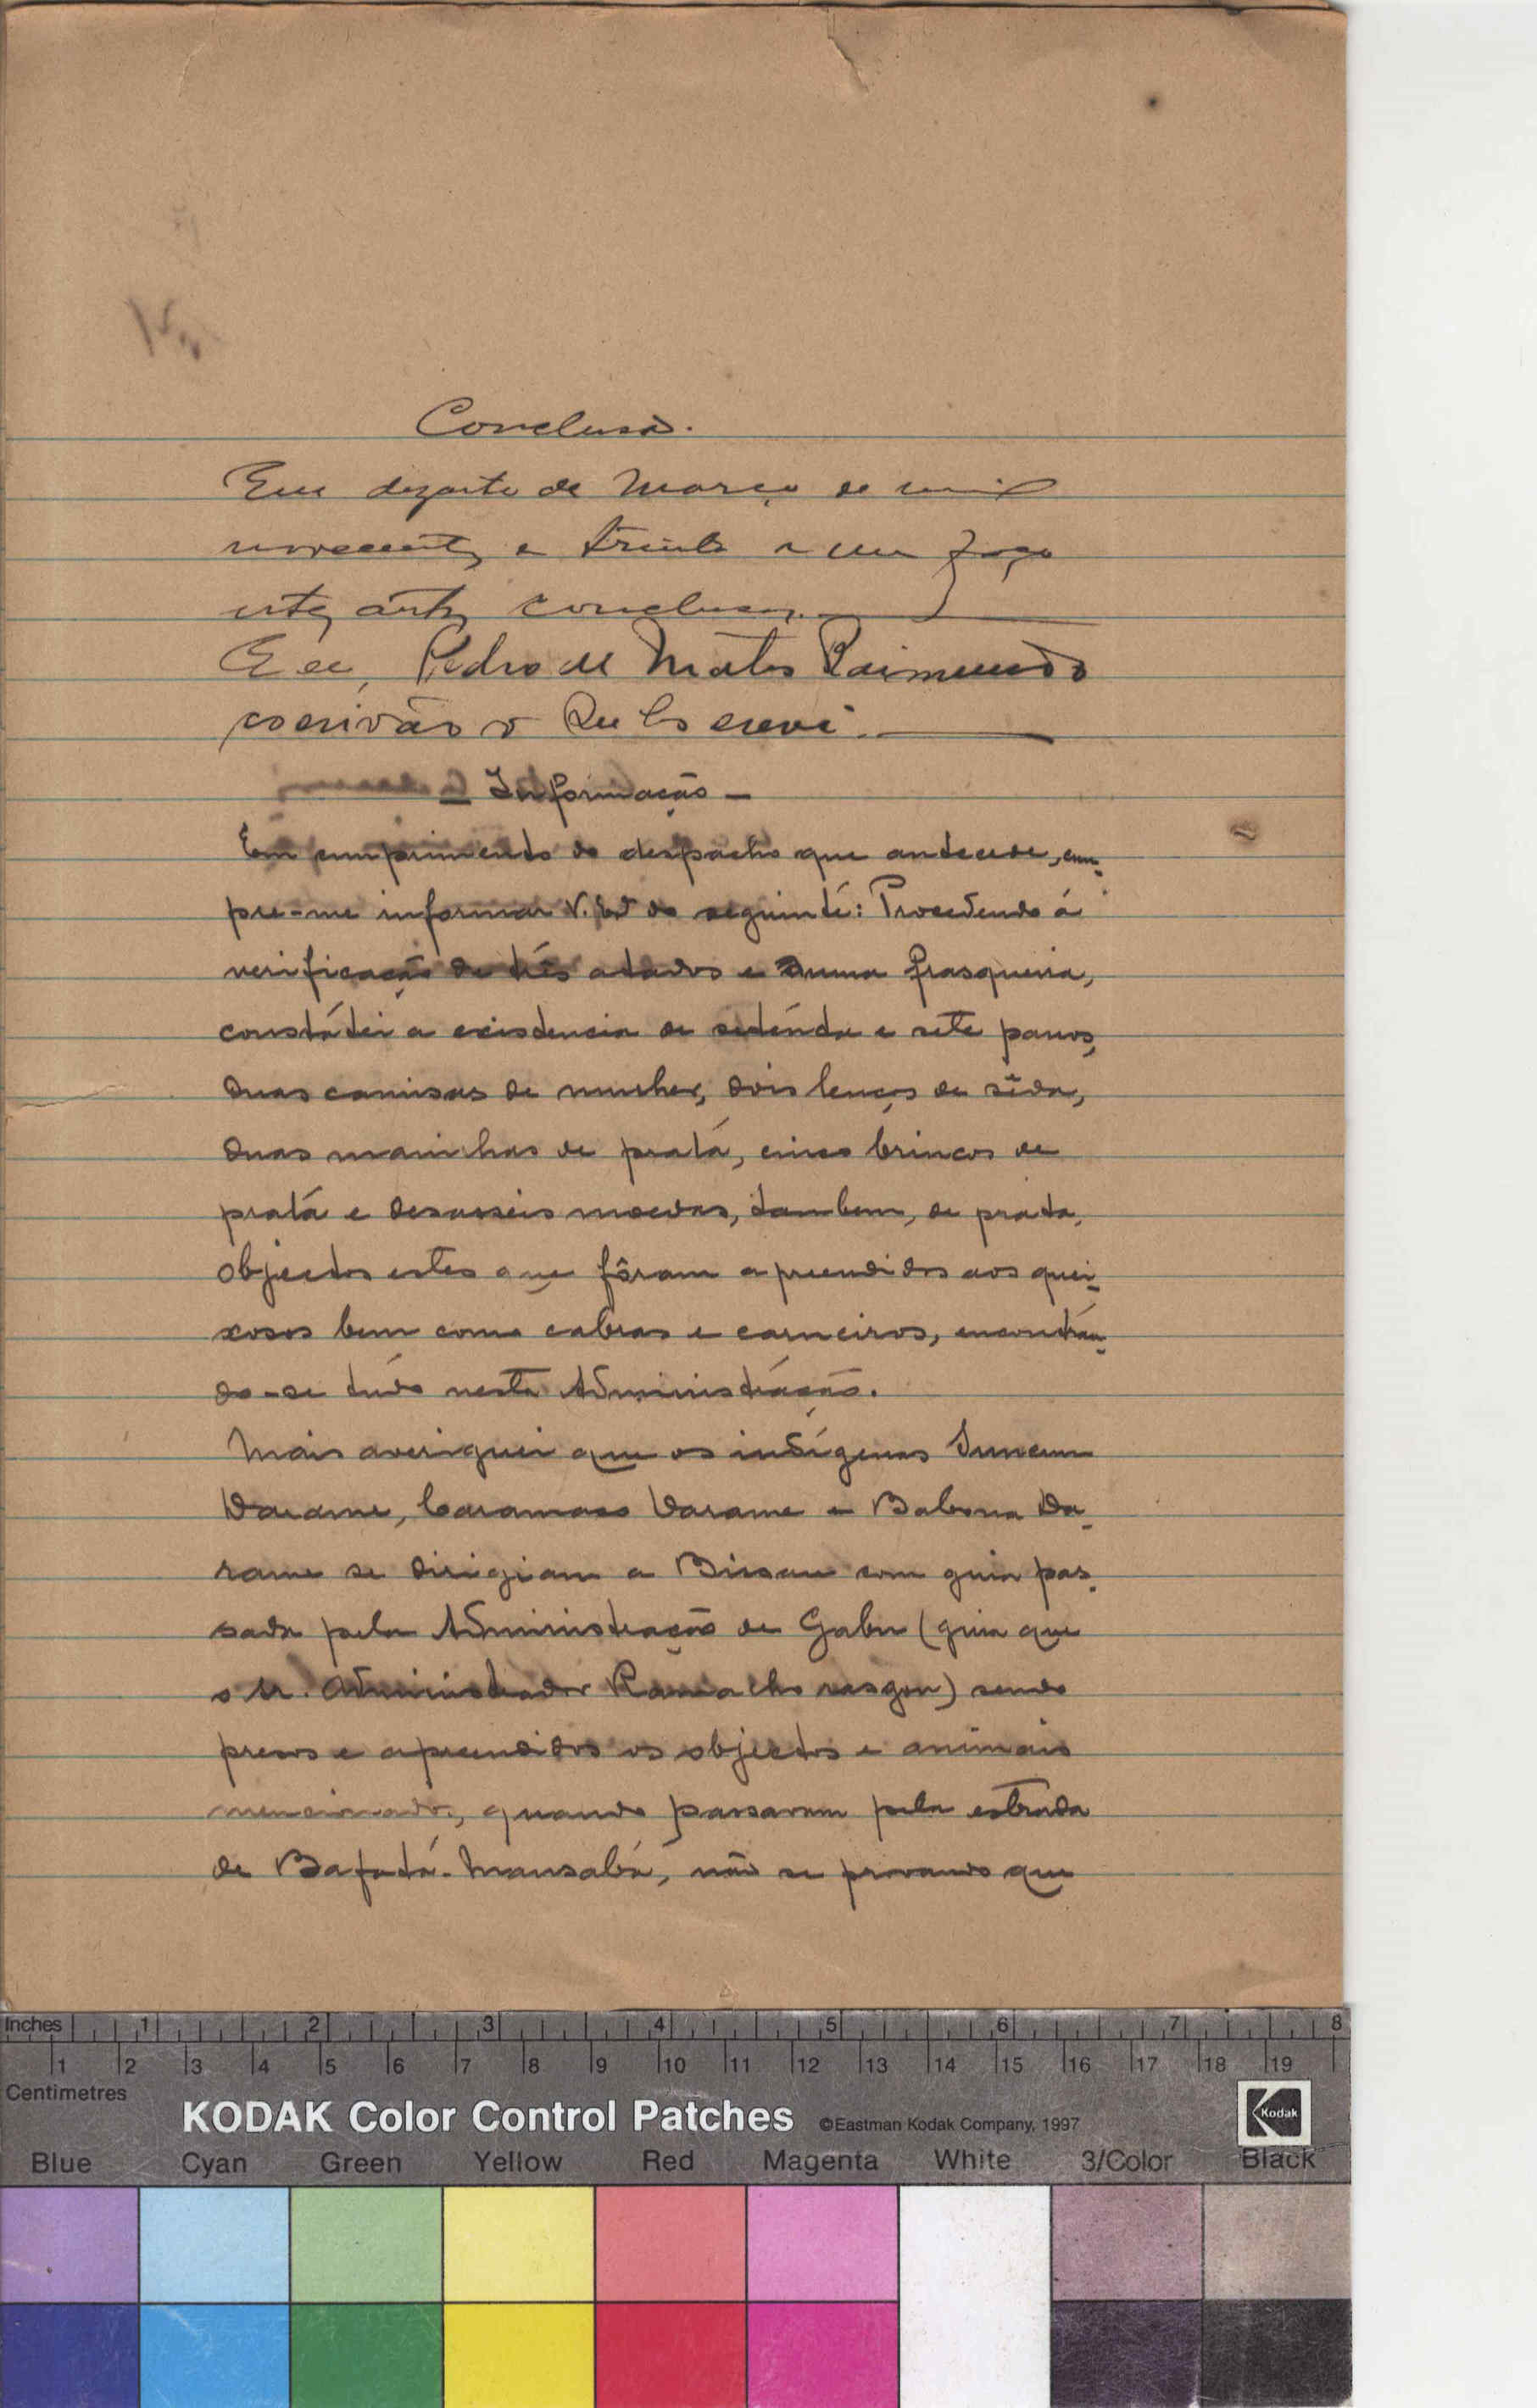 Conclusão.
Em dezoito de Março de mil
novecentos e trinta e um faço
estes autos conclusos.
E eu, Pedro de Matos Raimundo
escrivão o subscrevi.
— Informação —
Em cumprimento do despacho que antecede, cum-
pre-me informar V. Exª do seguinte: Procedendo á
verificação de três atados e duma frasqueira,
constátei a existencia de seténta e sete panos,
duas camisas de mulher, dois lenços de sêda,
duas manilhas de prata, cinco brincos de
pratá e desasseis moedas, tambem, de prata,
objectos estes que fôram apreendidos aos quei-
xosos bem como cabras e carneiros, encontrán-
do-se tudo nesta Administração.
Mais averiguei que os indígenas
Darame, Caramoco Darame e Babona Da-
rame se dirigiam a Bissau com guia pas-
sada pela Administração de Gabu (guia que
o sr. Administrador Ramalho rasgou) sendo
presos e apreendidos os objectos e animais
mencionados, quando passavam pela estrada
de Bafatá-Mansabá, não se provando que
Inches 1 2 3 4 5 6 7 8
1 2 3 4 5 6 7 8 9 10 11 12 13 14 15 16 17 18 19
Centimetres
KODAK Color Control Patches ©Eastman Kodak Company, 1997 Kodak
Blue Cyan Green Yellow Red Magenta White 3/Color Black